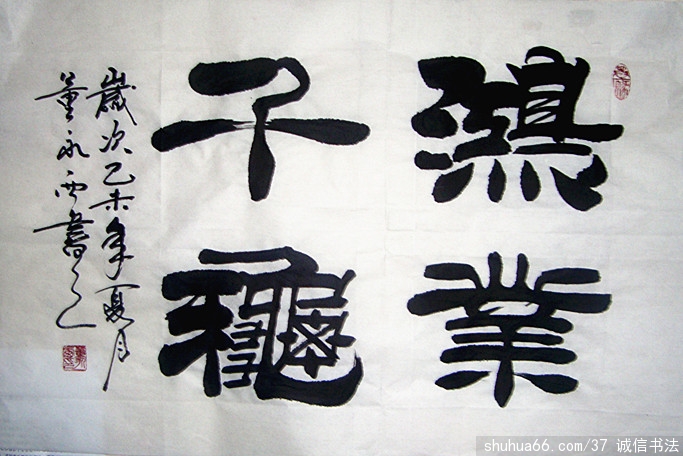 鴻業
千龝
歲次乙未年夏月
董永西書之
shuhua66.com/37 诚信书法